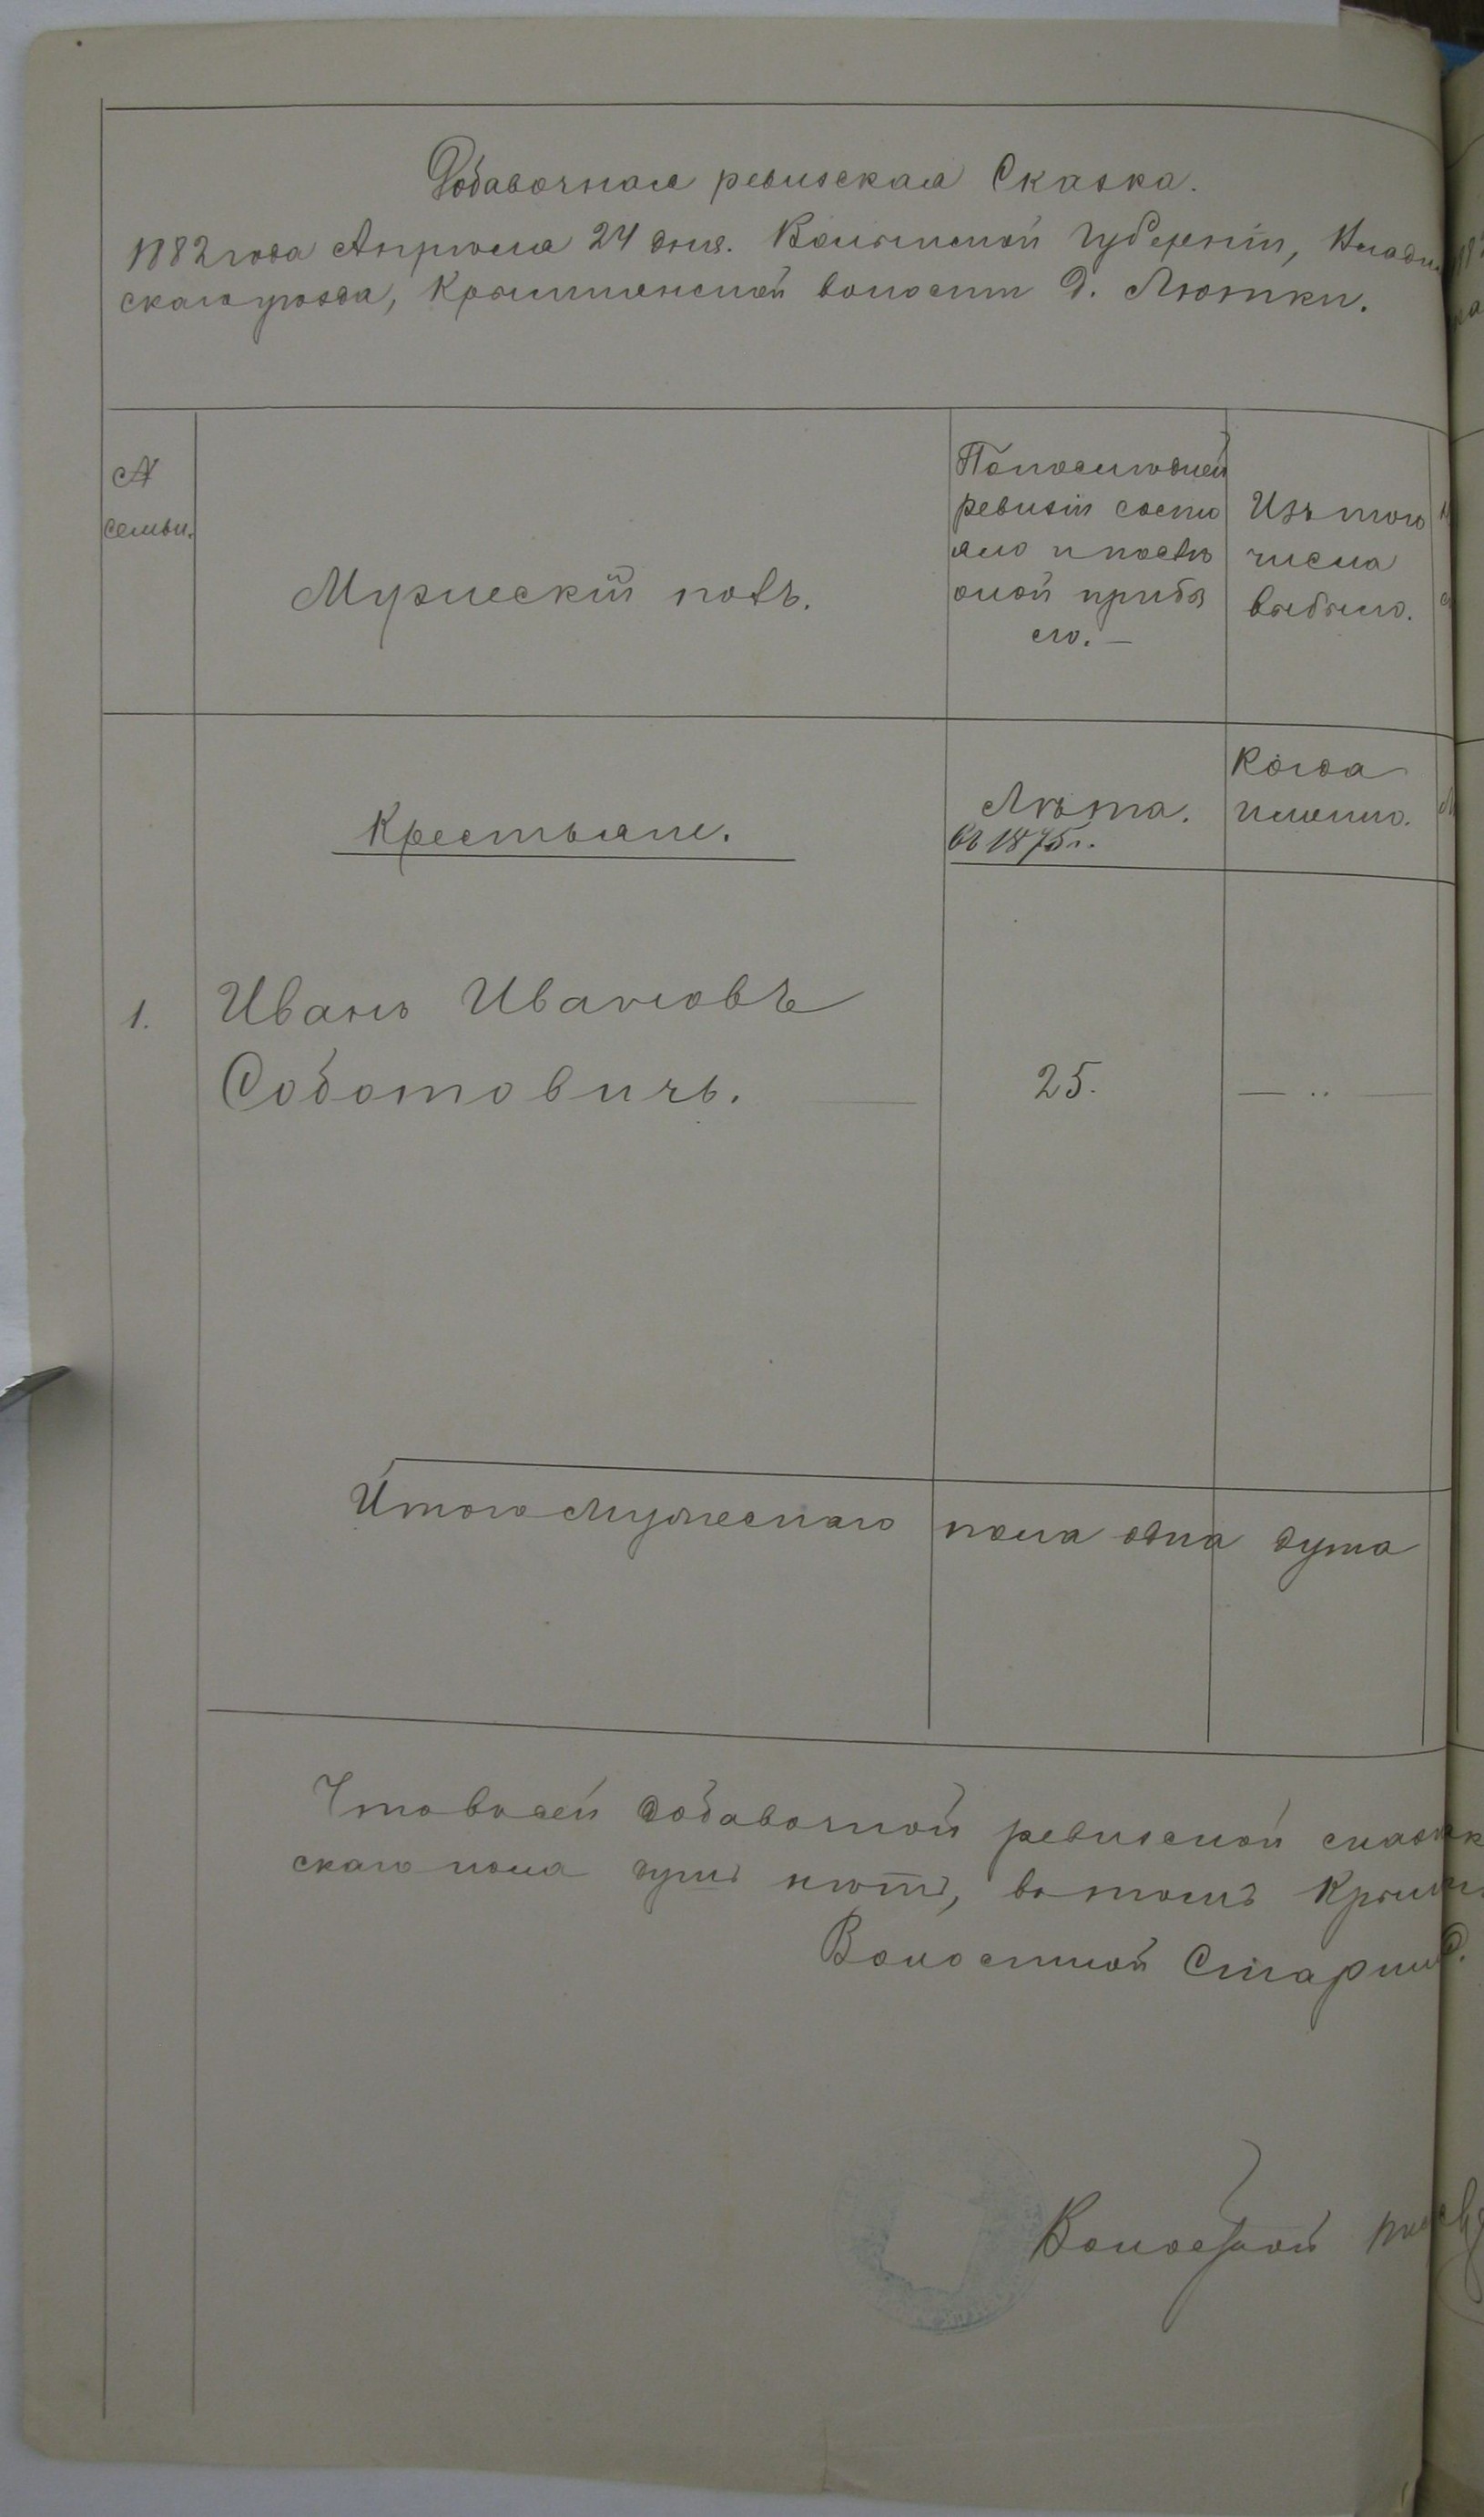 Добавочная ревизская Сказка.
1882 года Апрѣля 24 дня. Волынской Губерніи, Влади
скаго уѣзда, Крымненской волости д. Лютки.
№
семьи.
Мужескій полъ.
По послѣдней
ревизіи состо
яло и послѣ
оной прибы
ло. —
Изъ того
числа
выбыло.
Крестьяне.
Лѣта.
въ 1875 г.
Когда
именно.
1.
Иванъ Ивановъ
Соботовичъ. —
25.
— .. —
Итого мужескаго пола одна душа
Что во сей добавочной ревизской сказк
скаго пола душъ нѣтъ, во томъ Крым
Волостной Старши
Волостной